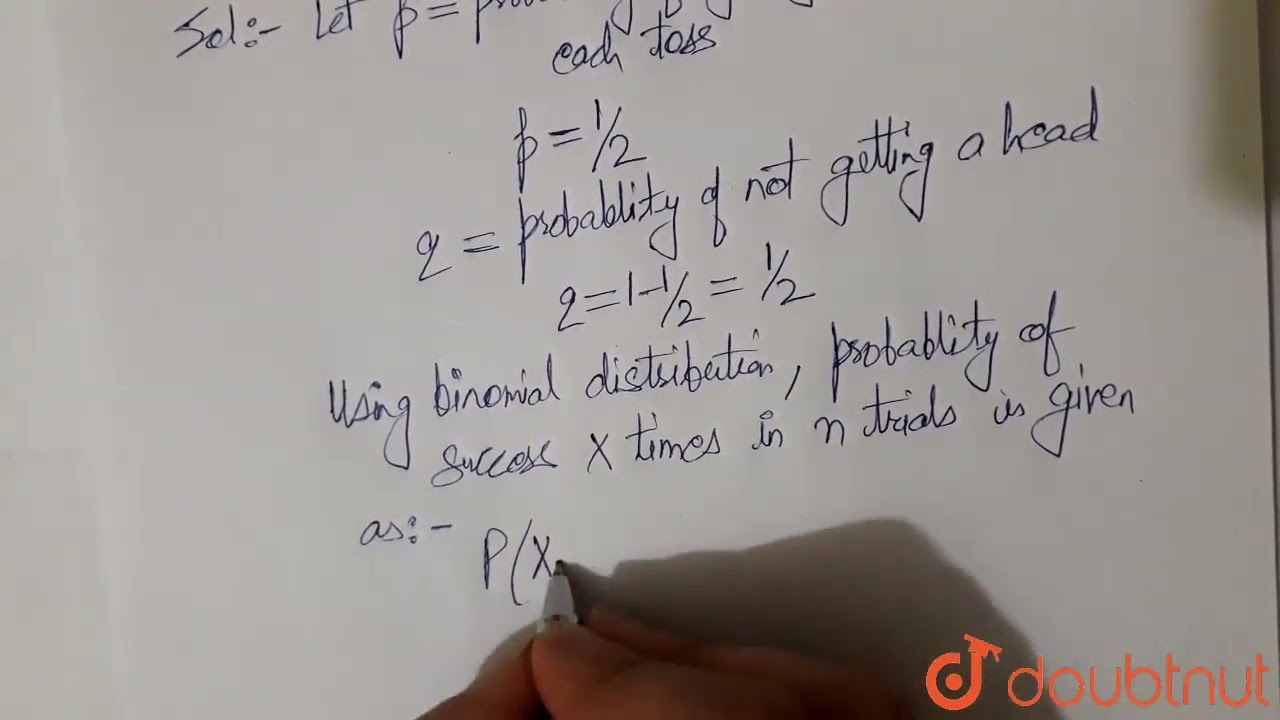 Sol:- Let p = 
each toss
p = 1/2
q = probablity of not getting a head
q = 1-1/2 = 1/2
Using binomial distribution, probablity of
success X times in n trials is given
as:- P(X
doubtnut